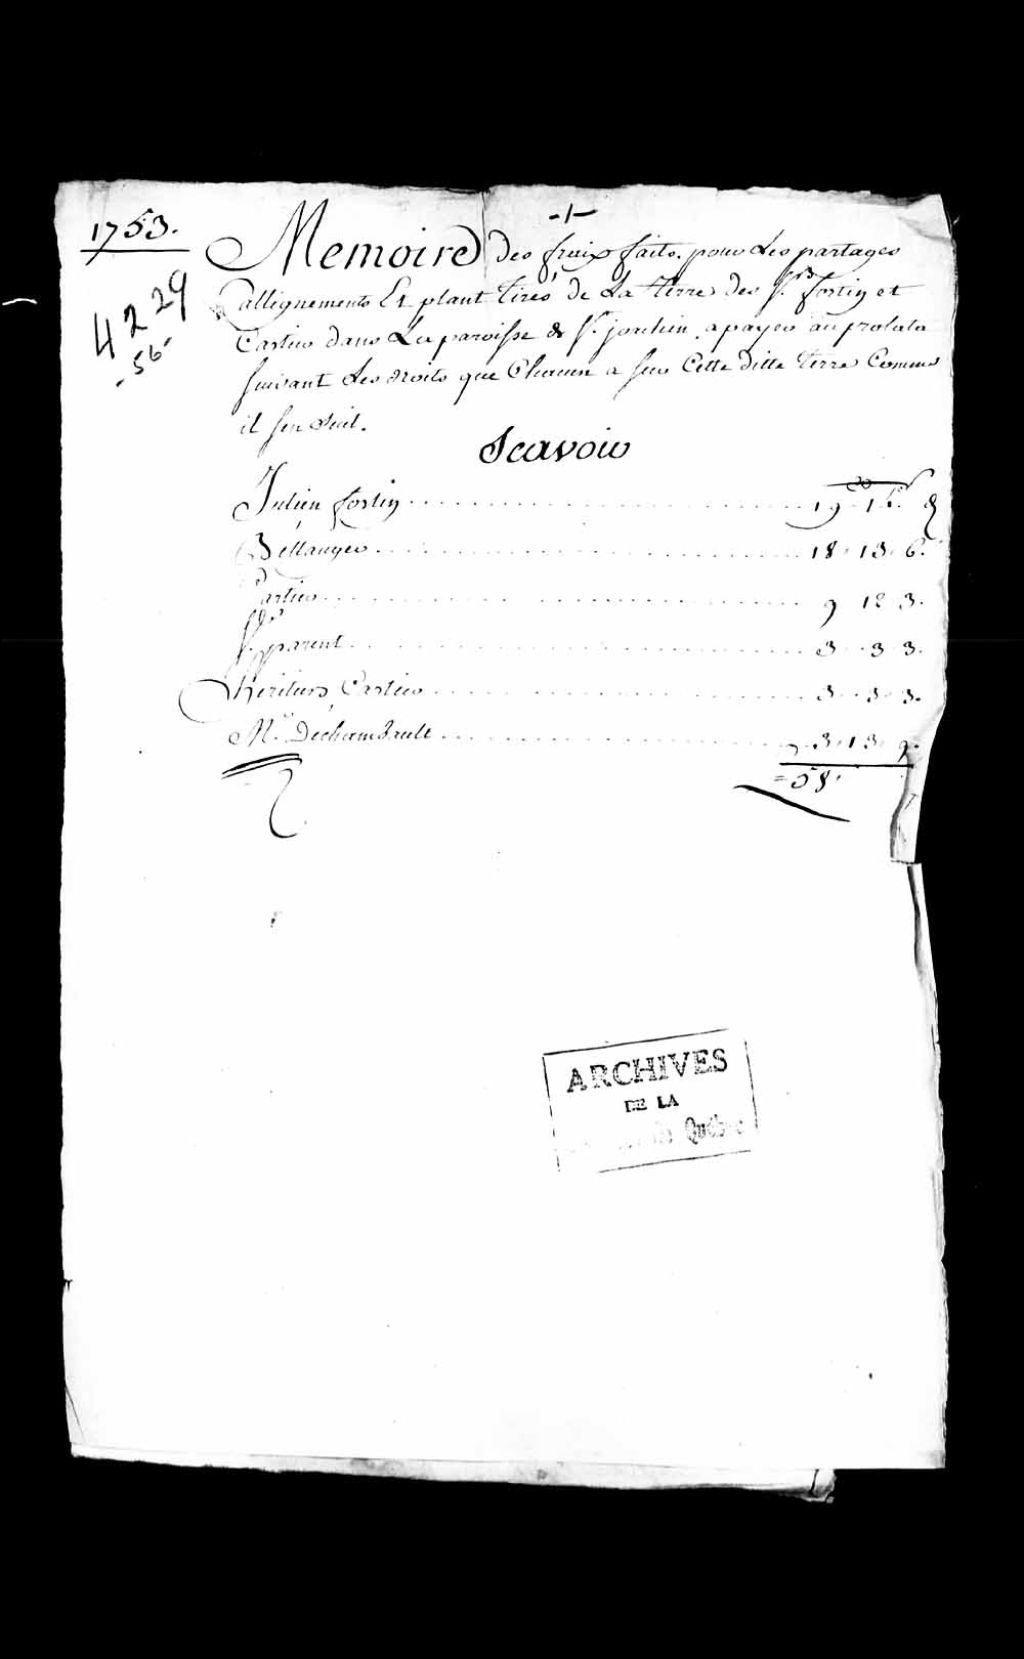 1753.
-1-
4229
-56-
Memoire des fraix faits pour Les partages
allignements Et plant tirés de La terre des Srs fortin et
Cartier dans La paroisse de St joachin, a payer au prolata
suivant Les droits que Chacun a sur Cette ditte terre Comme
il sen suit.
Scavoir
Julien fortin 19
Bellanger 18. 13. 6.
Cartier 9 12 3.
parent 3. 3 3.
heritiers Cartier 3. 3. 3.
Mr Dechambault 3. 13. 9.
58.
ARCHIVES
DE LA
de Québec